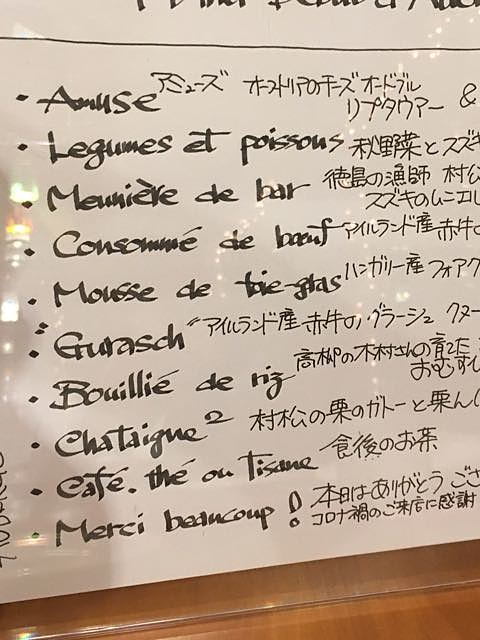 ・Amuse アミューズ オーストリアのチーズ オードブル
リプタウアー &
・Legumes et poissons 秋野菜とスズキ
・Meunière de bar 徳島の漁師 村公
スズキのムニエル
・Consommé de bœuf アイルランド産 赤牛の
・Mousse de foie-gras ハンガリー産 フォアグ
・"Gurasch" アイルランド産 赤牛のグラーシュ クヌー
・Bouillié de riz 高柳の木村さんの育てた
おむすび
・Chataigne² 村松の栗のガトーと栗ん
・Café. thé ou Tisane 食後のお茶
・Merci beaucoup! 本日はありがとうござ
コロナ禍のご来店に感謝